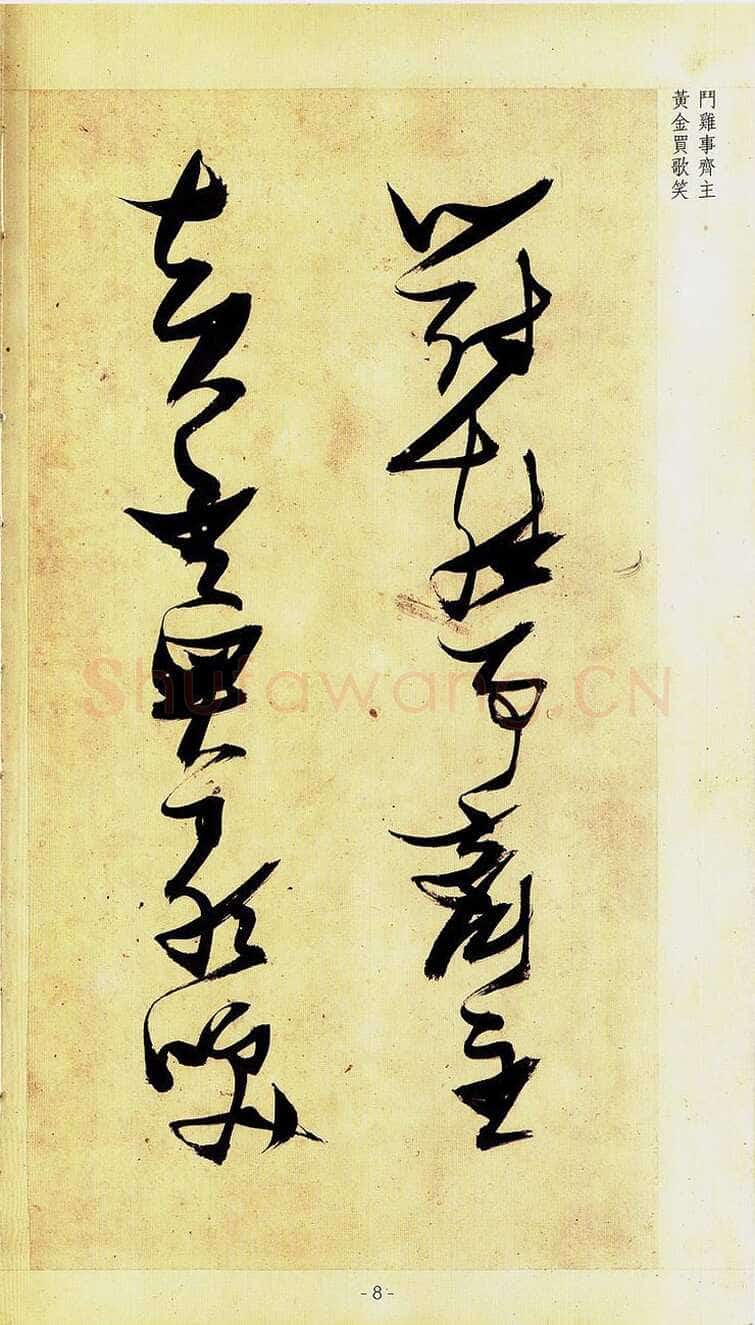 鬥雞事齊主
黃金買歌笑
鬥雞事齊主
黃金買歌笑
Shufawang.CN
- 8 -